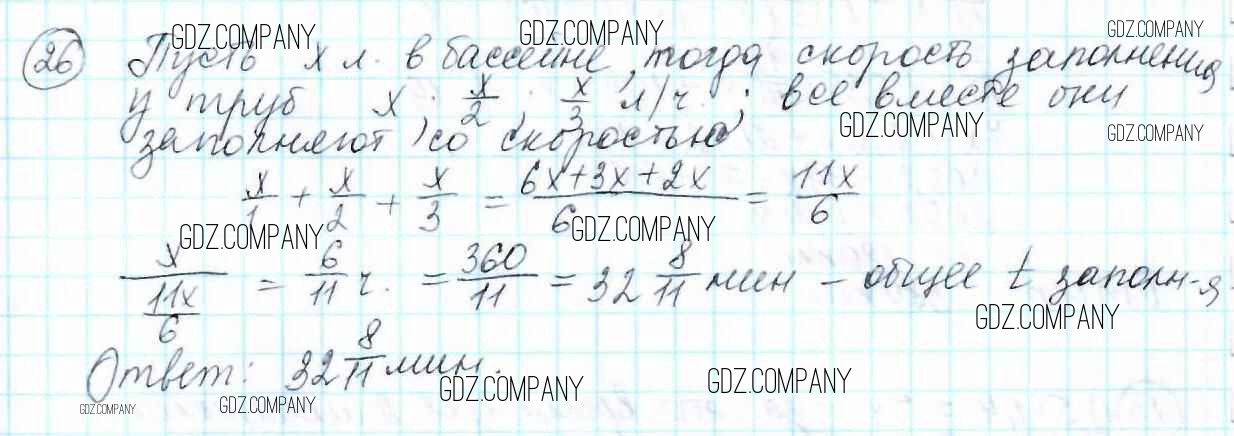 GDZ.COMPANY GDZ.COMPANY GDZ.COMPANY
26 Пусть x л. в бассейне, тогда скорость заполнения
у труб x, x/2, x/3 л/ч.; все вместе они
GDZ.COMPANY GDZ.COMPANY
заполняют со скоростью
x/1 + x/2 + x/3 = (6x+3x+2x)/6 = 11x/6
GDZ.COMPANY GDZ.COMPANY
x/(11x/6) = 6/11 ч. = 360/11 = 32 8/11 мин – общее t заполн-я
GDZ.COMPANY
Ответ: 32 8/11 мин.
GDZ.COMPANY GDZ.COMPANY GDZ.COMPANY GDZ.COMPANY